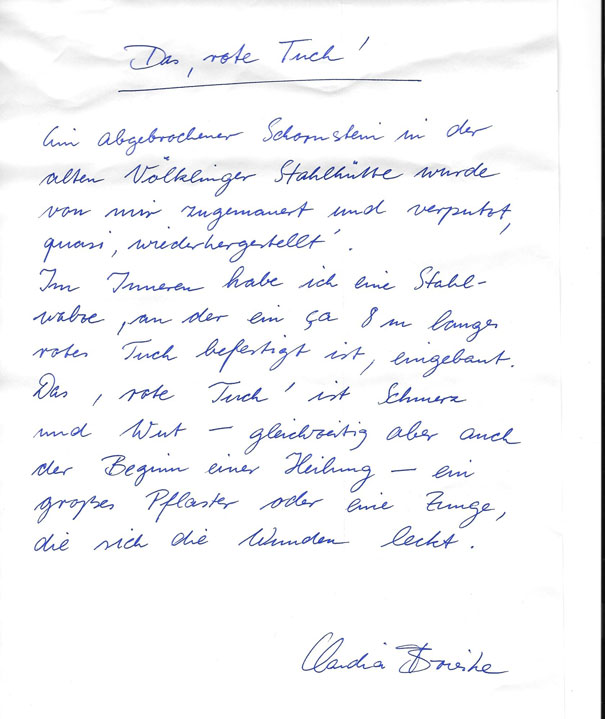 Das ‚rote Tuch'
Ein abgebrochener Schornstein in der
alten Völklinger Stahlhütte wurde
von mir zugemauert und verputzt,
quasi ‚wiederhergestellt'.
Im Inneren habe ich eine Stahl-
wabe, an der ein ça 8 m langes
rotes Tuch befestigt ist, eingebaut.
Das ‚rote Tuch' ist Schmerz
und Wut – gleichzeitig aber auch
der Beginn einer Heilung – ein
großes Pflaster oder eine Zunge,
die sich die Wunden leckt.
Claudia